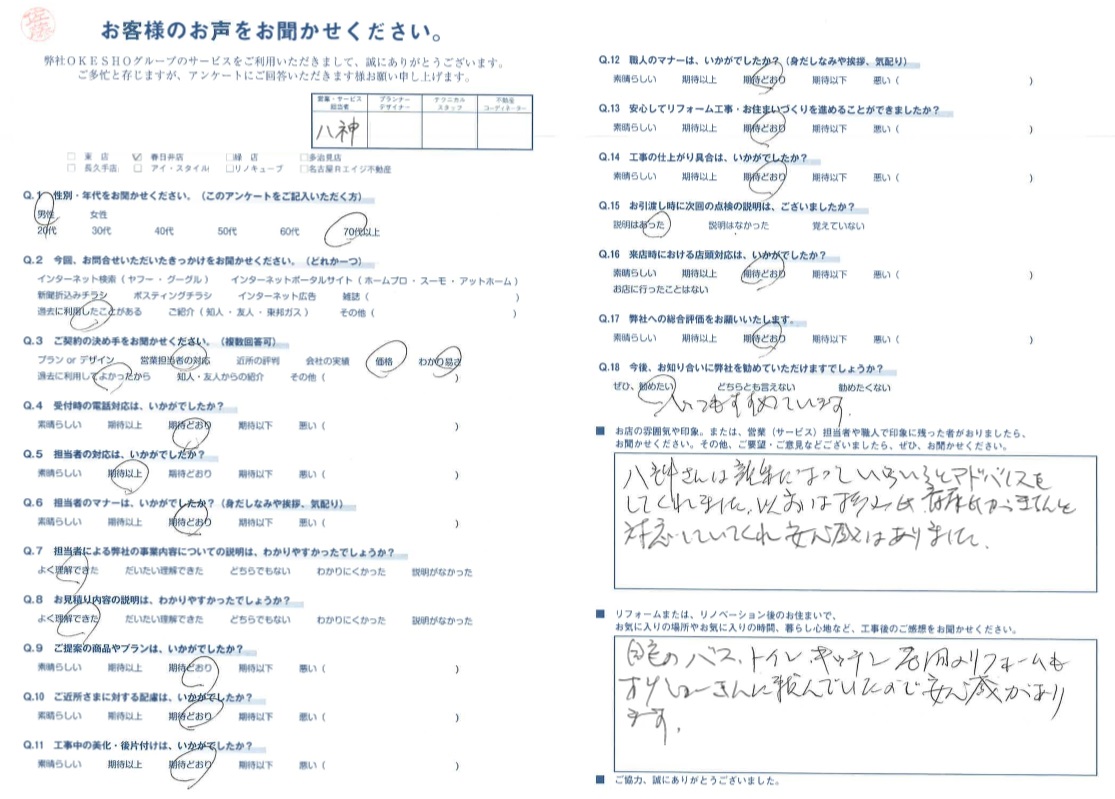 お客様のお声をお聞かせください。
弊社OKESHOグループのサービスをご利用いただきまして、誠にありがとうございます。
ご多忙と存じますが、アンケートにご回答いただきます様お願い申し上げます。
営業・サービス担当者 プランナーデザイナー テクニカルスタッフ 不動産コーディネーター
八神
□ 東 店 ☑ 春日井店 □緑 店 □多治見店
□ 長久手店 □ アイ・スタイル □リノキューブ □名古屋Rエイジ不動産
Q.1 性別・年代をお聞かせください。(このアンケートをご記入いただく方)
男性 女性
20代 30代 40代 50代 60代 70代以上
Q.2 今回、お問合せいただいたきっかけをお聞かせください。(どれか一つ)
インターネット検索(ヤフー・グーグル) インターネットポータルサイト(ホームプロ・スーモ・アットホーム)
新聞折込みチラシ ポスティングチラシ インターネット広告 雑誌( )
過去に利用したことがある ご紹介(知人・友人・東邦ガス) その他( )
Q.3 ご契約の決め手をお聞かせください。(複数回答可)
プラン or デザイン 営業担当者の対応 近所の評判 会社の実績 価格 わかり易さ
過去に利用してよかったから 知人・友人からの紹介 その他( )
Q.4 受付時の電話対応は、いかがでしたか?
素晴らしい 期待以上 期待どおり 期待以下 悪い( )
Q.5 担当者の対応は、いかがでしたか?
素晴らしい 期待以上 期待どおり 期待以下 悪い( )
Q.6 担当者のマナーは、いかがでしたか?(身だしなみや挨拶、気配り)
素晴らしい 期待以上 期待どおり 期待以下 悪い( )
Q.7 担当者による弊社の事業内容についての説明は、わかりやすかったでしょうか?
よく理解できた だいたい理解できた どちらでもない わかりにくかった 説明がなかった
Q.8 お見積り内容の説明は、わかりやすかったでしょうか?
よく理解できた だいたい理解できた どちらでもない わかりにくかった 説明がなかった
Q.9 ご提案の商品やプランは、いかがでしたか?
素晴らしい 期待以上 期待どおり 期待以下 悪い( )
Q.10 ご近所さまに対する配慮は、いかがでしたか?
素晴らしい 期待以上 期待どおり 期待以下 悪い( )
Q.11 工事中の美化・後片付けは、いかがでしたか?
素晴らしい 期待以上 期待どおり 期待以下 悪い( )
Q.12 職人のマナーは、いかがでしたか?(身だしなみや挨拶、気配り)
素晴らしい 期待以上 期待どおり 期待以下 悪い( )
Q.13 安心してリフォーム工事・お住まいづくりを進めることができましたか?
素晴らしい 期待以上 期待どおり 期待以下 悪い( )
Q.14 工事の仕上がり具合は、いかがでしたか?
素晴らしい 期待以上 期待どおり 期待以下 悪い( )
Q.15 お引渡し時に次回の点検の説明は、ございましたか?
説明はあった 説明はなかった 覚えていない
Q.16 来店時における店頭対応は、いかがでしたか?
素晴らしい 期待以上 期待どおり 期待以下 悪い( )
お店に行ったことはない
Q.17 弊社への総合評価をお願いいたします。
素晴らしい 期待以上 期待どおり 期待以下 悪い( )
Q.18 今後、お知り合いに弊社を勧めていただけますでしょうか?
ぜひ、勧めたい どちらとも言えない 勧めたくない
いつもすすめています。
■ お店の雰囲気や印象。または、営業(サービス)担当者や職人で印象に残った者がおりましたら、
お聞かせください。その他、ご要望・ご意見などございましたら、ぜひ、お聞かせください。
八神さんは親身になっていろいろとアドバイスを
してくれました。以前は
対応していてくれ安心感はありました。
■ リフォームまたは、リノベーション後のお住まいで、
お気に入りの場所やお気に入りの時間、暮らし心地など、工事後のご感想をお聞かせください。
自宅のバス、トイレ、キッチン リフォームも
オケショーさんに頼んでいたので安心感があり
ます。
■ ご協力、誠にありがとうございました。